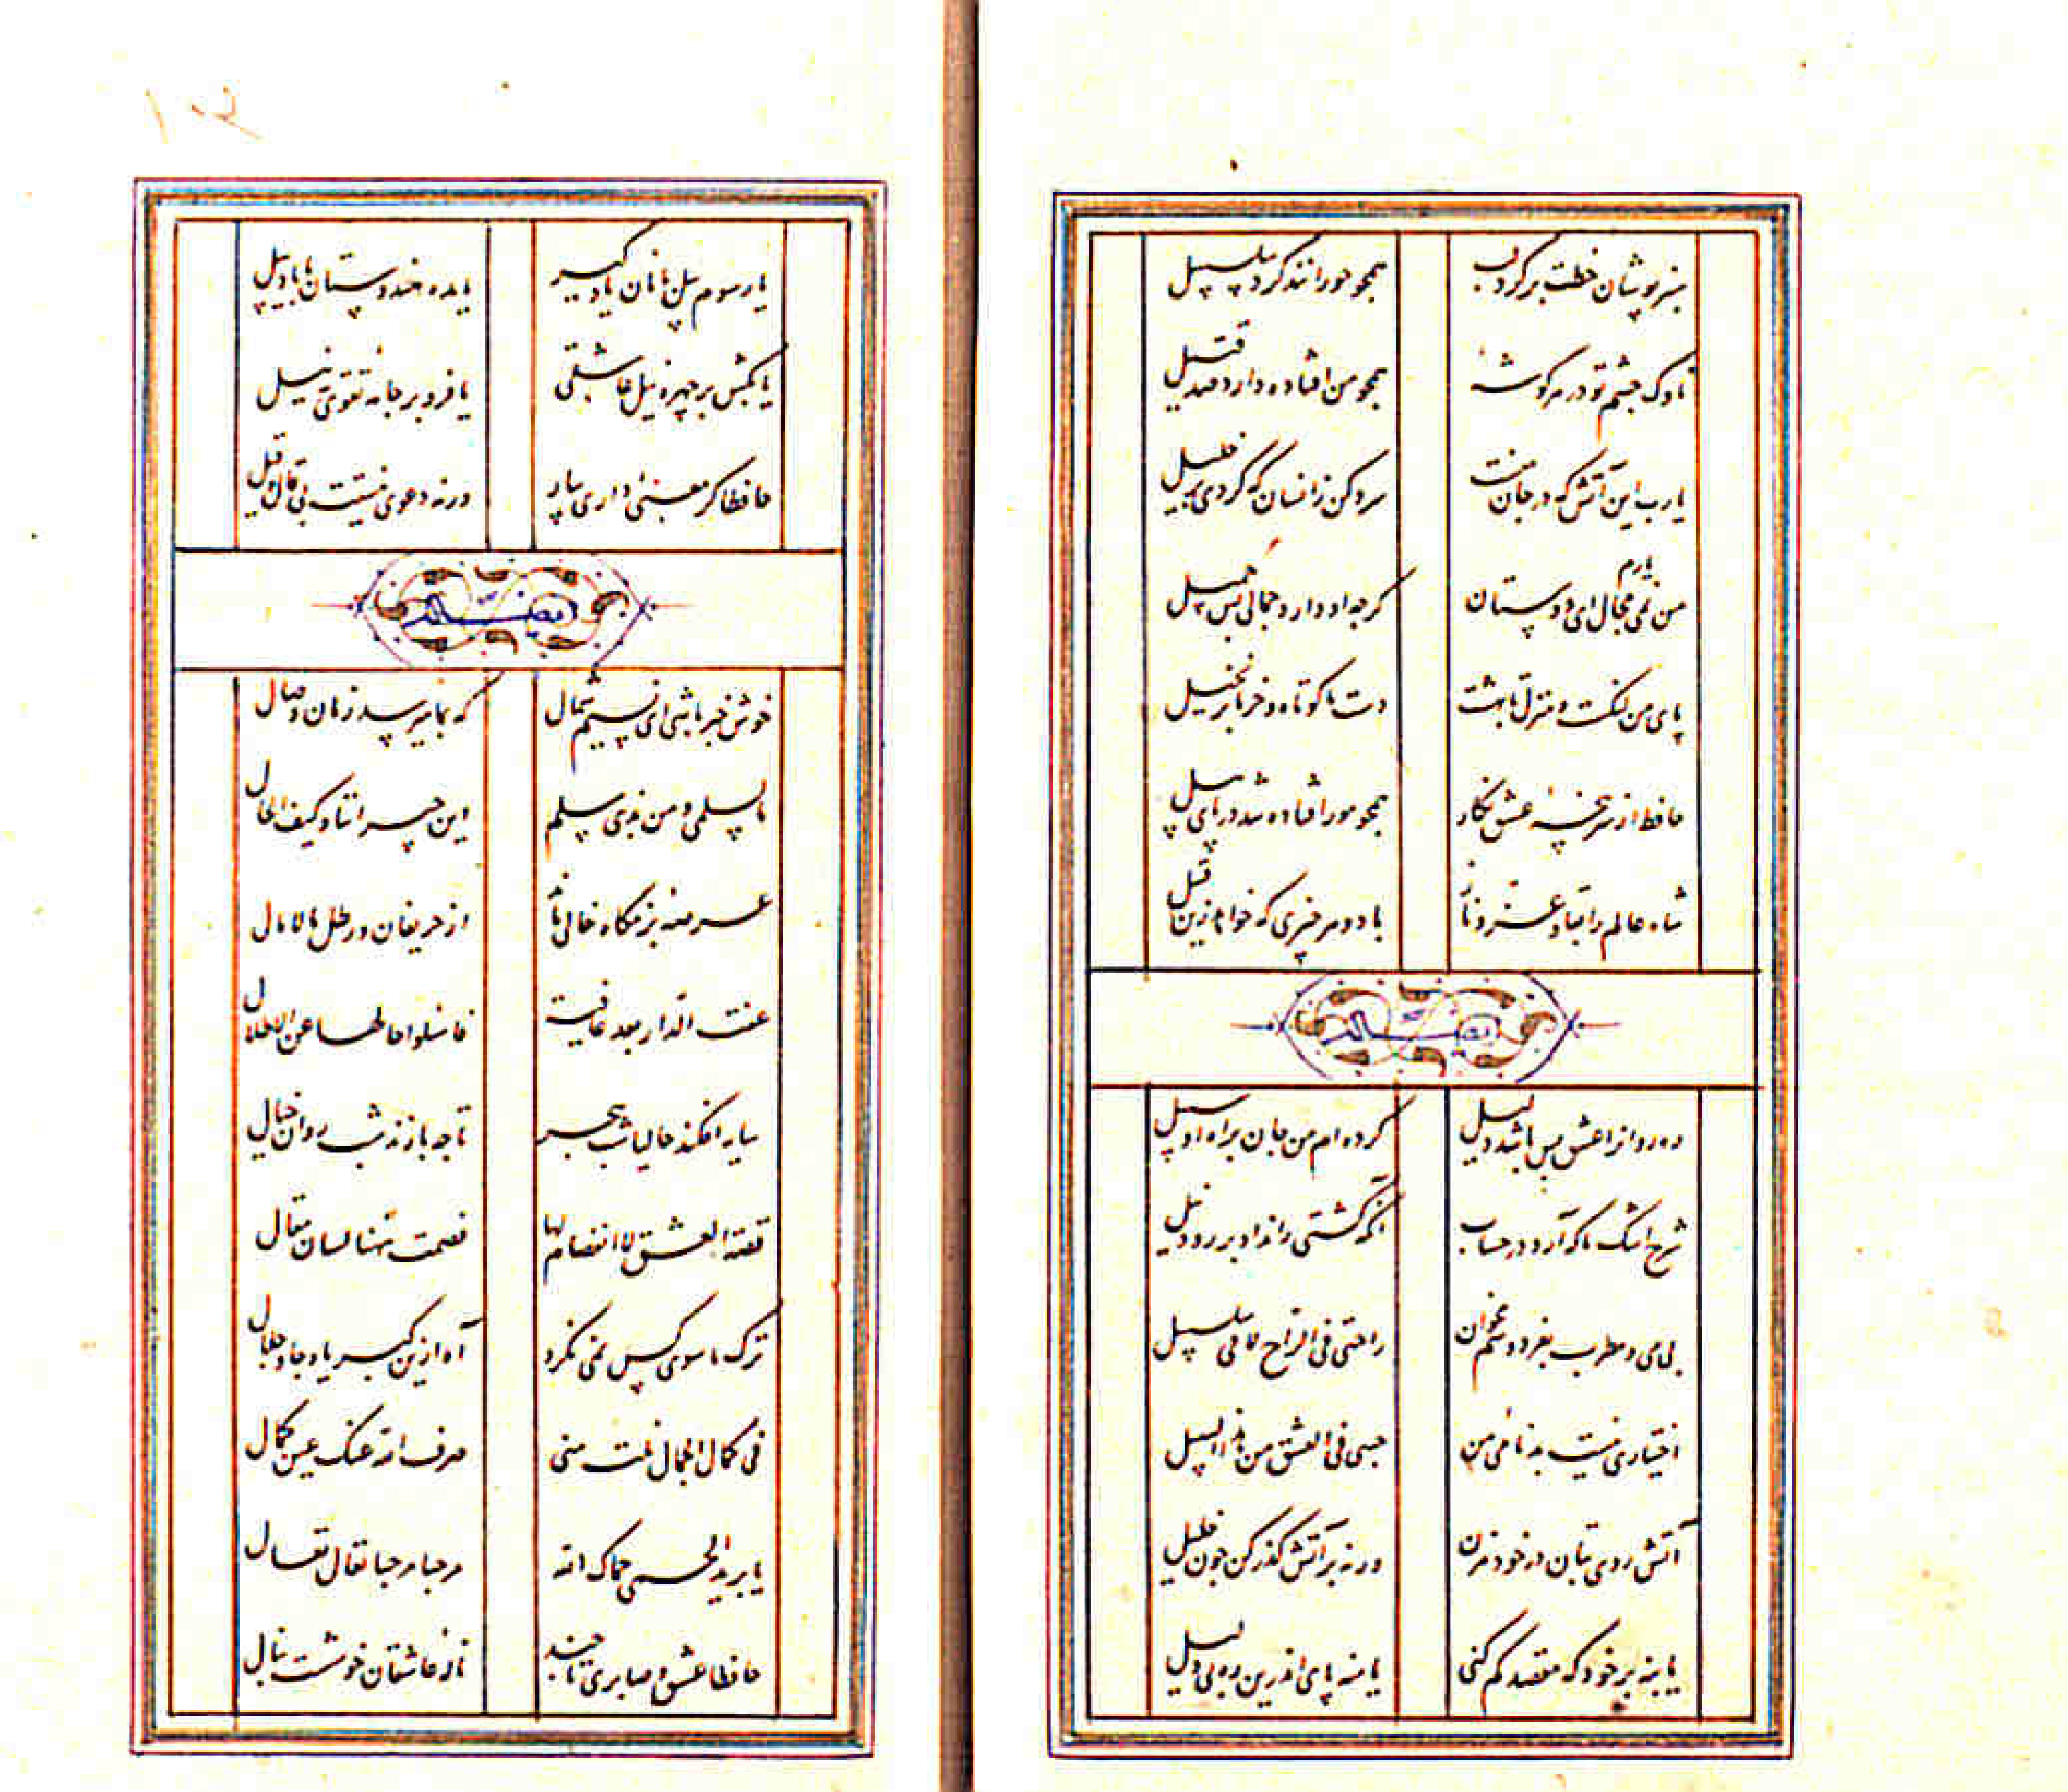 سبزپوشان خطت بر گرد لب همچو حورانند گرد سلسبیل
ناوک چشم تو در هر گوشهٔ همچو من افتاده دارد صد قتیل
یارب این آتش که در جان منست سرد کن زانسان که کردی بر خلیل
من نمی یارم مجال ای دوستان گرچه او دارد جمالی بس جمیل
پای من لنگست و منزل تا بهشت دست ما کوتاه و خرما بر نخیل
حافظ از سرپنجهٔ عشق نگار همچو مور افتاده شد در پای پیل
شاه عالم را بقا و عز و ناز باد و هر چیزی که خواهد زین قبیل
وله ایضا
ره روانرا عشق بس باشد دلیل کرده ام من جان براه او سبیل
شرح اشک ما که آرد در حساب آنکه کشتی راند او بر رود نیل
بی می و مطرب بفردوسم مخوان راحتی فی الراح لا فی سلسبیل
اختیاری نیست بدنامی من حسبی فی العشق من هذا السبیل
آتش روی بتان در خود مزن ورنه بر آتش گذر کن چون خلیل
یا بنه بر خود که مقصد گم کنی یا منه پای اندرین ره بی دلیل
۱۳
یا رسوم پیل بانان یاد گیر یا مده هندوستان با یاد پیل
یا مکش بر چهره نیل عاشقی یا فرو بر جامهٔ تقوی بنیل
حافظا گر معنئی داری بیار ورنه دعوی نیست بی قال و قیل
وله ایضا
خوش خبر باشی ای نسیم شمال که بما میرسد زمان وصال
ما بسلمی و من بذی سلم این جیراننا و کیف الحال
عرصهٔ بزمگاه خالی ماند از حریفان و رطل مالامال
عفت الدار بعد عافیة فاسئلوا حالها عن الاطلال
سایه افکند حالیا شب هجر تا چه بازند شب روان خیال
قصة العشق لا انفصام لها فصمت هنا لسان مقال
ترک ما سوی کس نمی نگرد آه ازین کبریا و جاه و جلال
فی کمال الجمال نلت منی صرف الله عنک عین کمال
یا برید الحمی حماک الله مرحبا مرحبا تعال تعال
حافظا عشق و صابری تا چند نالهٔ عاشقان خوشست بنال